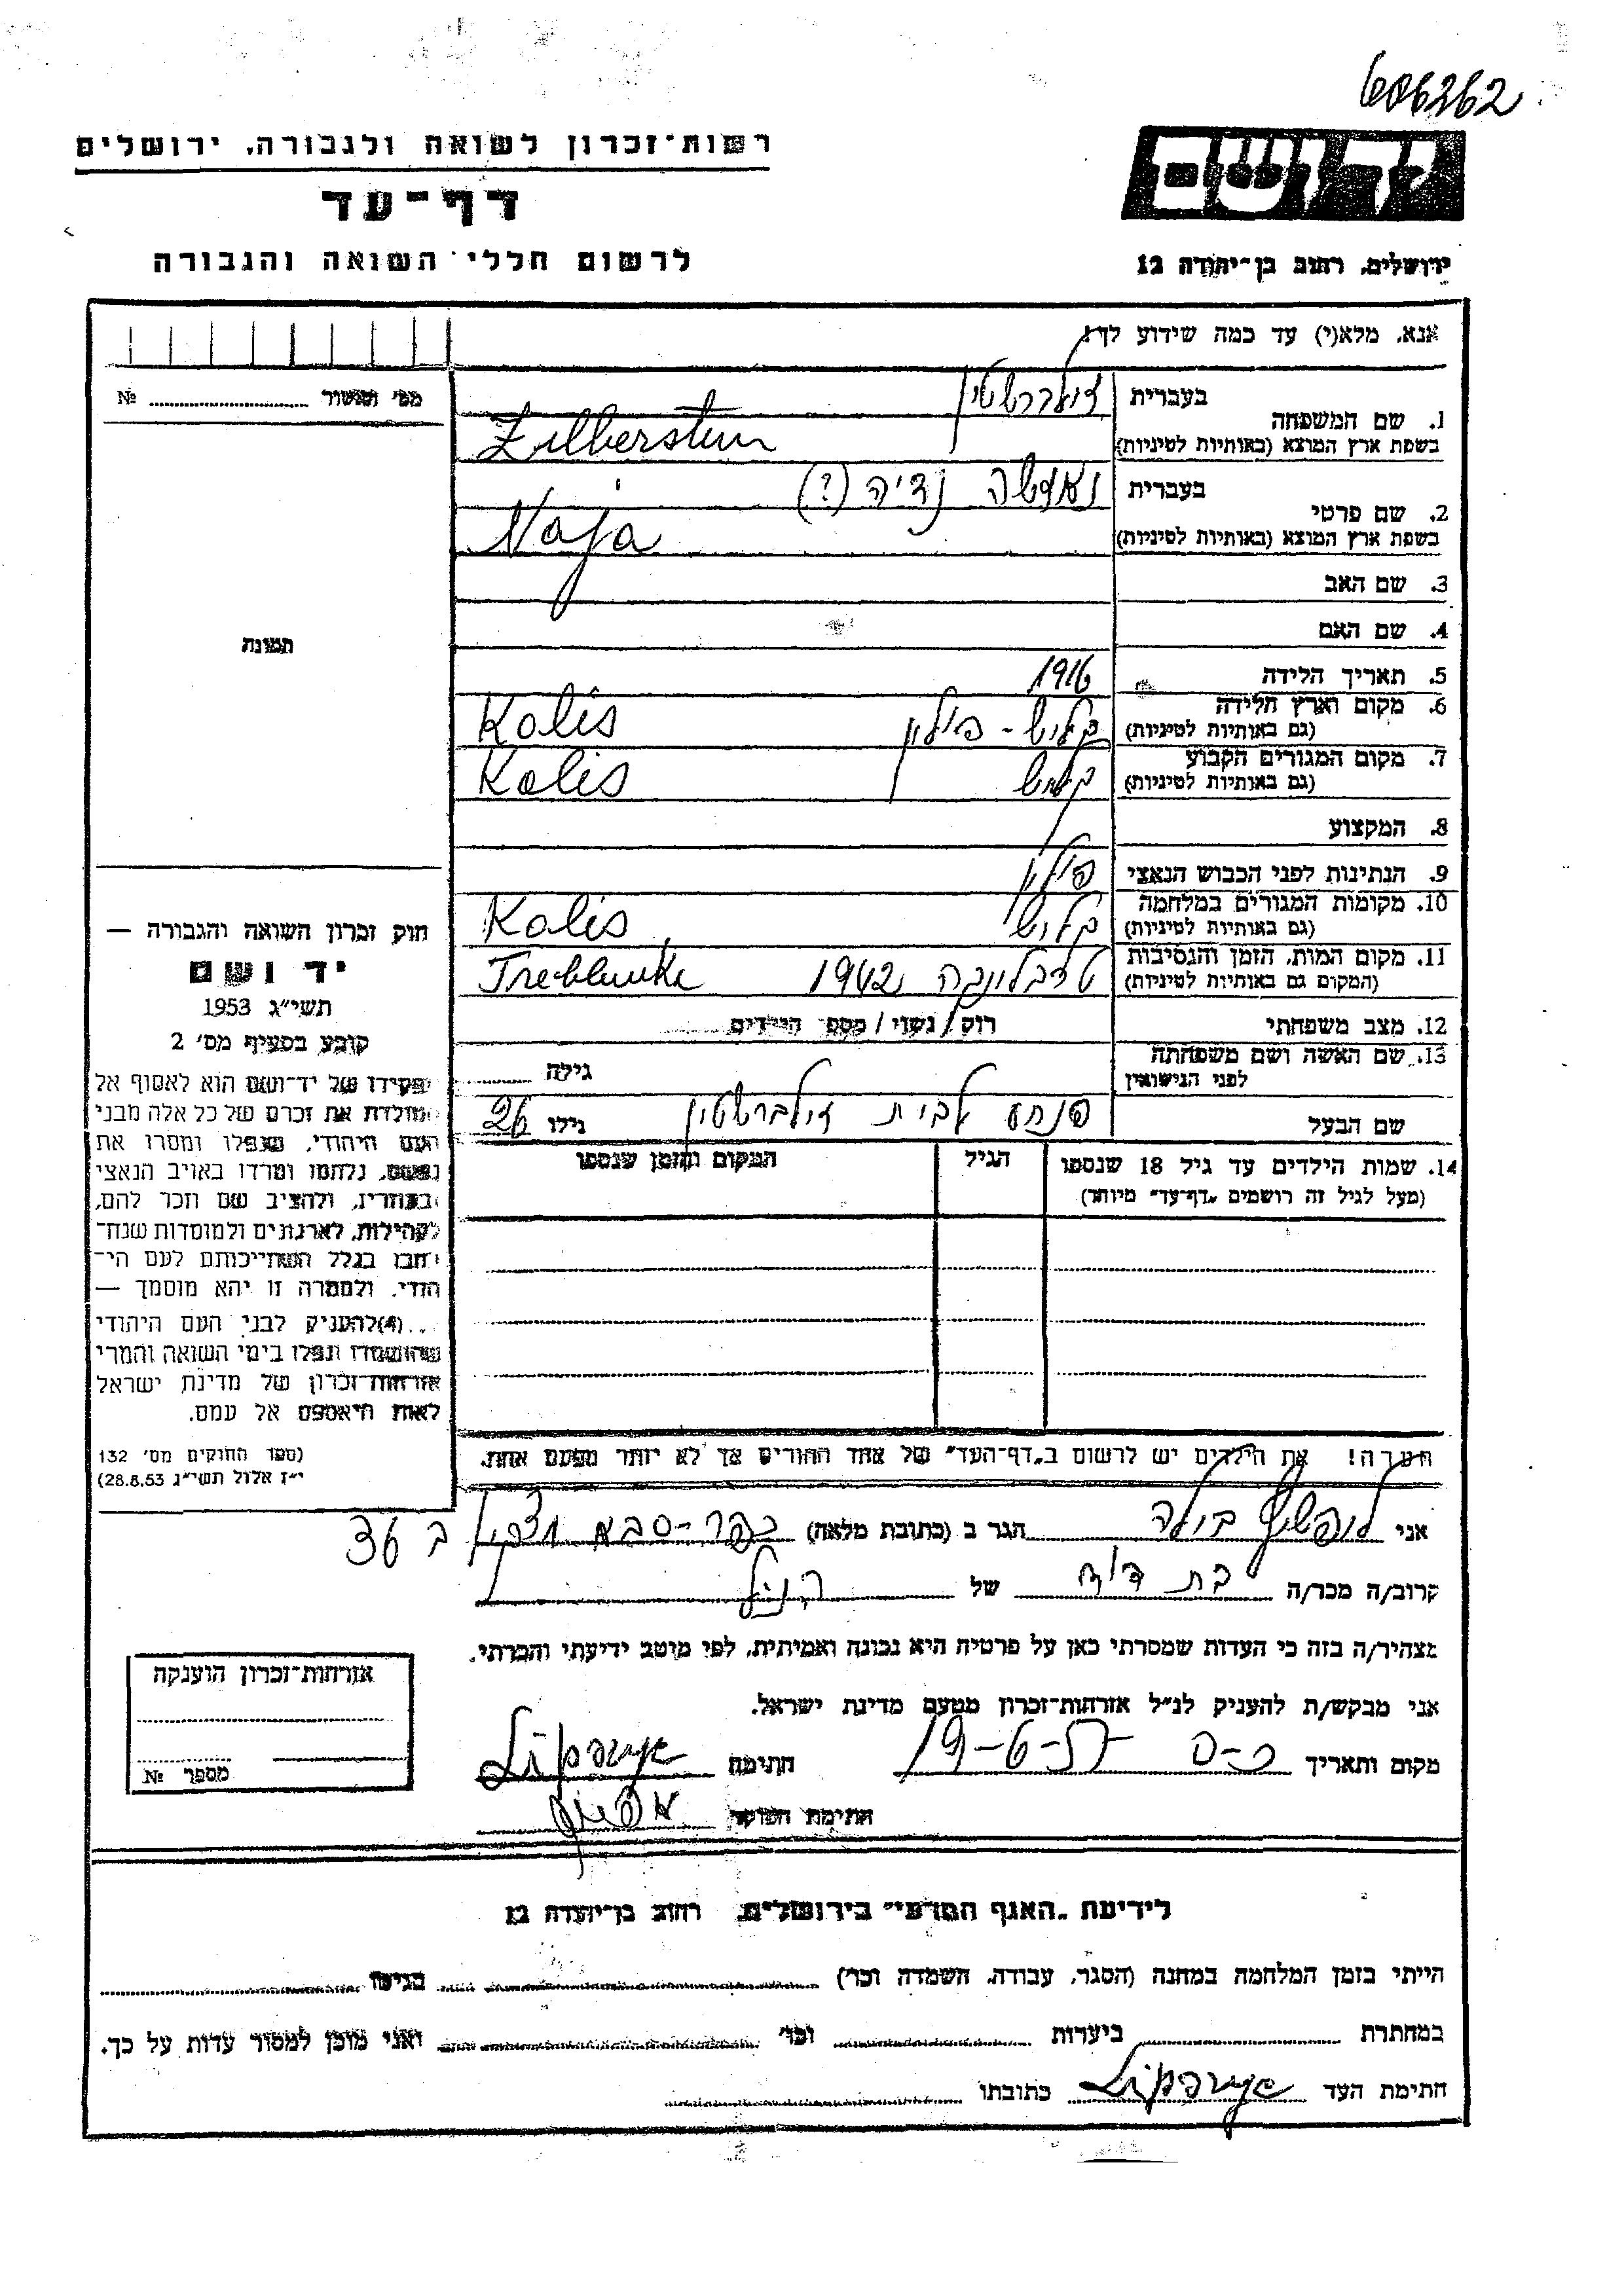 606262
רשות־זכרון לשואה ולגבורה, ירושלים
יד ושם
דף־עד
לרשום חללי השואה והגבורה
ירושלים, רחוב בן־יהודה 12
אנא, מלא(י) עד כמה שידוע לך!
מס' תאשור № 
1. שם המשפחה
בעברית זילברשטיין
בשפת ארץ המוצא (באותיות לטיניות) Zilberstein
2. שם פרטי
בעברית נאטשה נדיה (?)
בשפת ארץ המוצא (באותיות לטיניות) Naja
3. שם האב
4. שם האם
5. תאריך הלידה 1916
6. מקום וארץ הלידה (גם באותיות לטיניות) קליש - פולין Kalis
7. מקום המגורים הקבוע (גם באותיות לטיניות) קליש Kalis
8. המקצוע
9. הנתינות לפני הכבוש הנאצי פולין
10. מקומות המגורים במלחמה (גם באותיות לטיניות) קליש Kalis
11. מקום המות, הזמן והנסיבות (המקום גם באותיות לטיניות) טרבלינקה 1942 Treblinka
12. מצב משפחתי רוק / נשוי / מספר הילדים
13. שם האשה ושם משפחתה לפני הנישואין גילה
שם הבעל לבית זילברשטיין גילו 26
14. שמות הילדים עד גיל 18 שנספו (מעל לגיל זה רושמים "דף־עד" מיוחד)
הגיל
המקום והזמן שנספו
תמונה
חוק זכרון השואה והגבורה —
יד ושם
תשי"ג 1953
קובע בסעיף מס' 2
תפקידו של יד־ושם הוא לאסוף אל
המולדת את זכרם של כל אלה מבני
העם היהודי, שנפלו ומסרו את
נפשם, נלחמו ומרדו באויב הנאצי
ובעוזריו, ולהציב שם וזכר להם,
לקהילות, לארגונים ולמוסדות שנח־
רבו בגלל השתייכותם לעם הי־
הודי. ולמטרה זו יהא מוסמך —
...(4) להעניק לבני העם היהודי
שהושמדו ונפלו בימי השואה והמרי
אזרחות־זכרון של מדינת ישראל
לאות היאספם אל עמם.
(ספר החוקים מס' 132
י"ז אלול תשי"ג 28.8.53)
הערה! את הילדים יש לרשום ב"דף־העד" של אחד ההורים אך לא יותר מפעם אחת.
אני ליפשיץ הגר ב (כתובת מלאה) כפר-סבא ב 36
קרוב/ה מכר/ה בת דוד של הנ"ל
מצהיר/ה בזה כי העדות שמסרתי כאן על פרטיה היא נכונה ואמיתית, לפי מיטב ידיעתי והכרתי.
אני מבקש/ת להעניק לנ"ל אזרחות־זכרון מטעם מדינת ישראל.
מקום ותאריך כ-ס 19-6-57 חתימה
חתימת הפוקד
אזרחות־זכרון הוענקה
מספר №
לידיעת "האגף המדעי" בירושלים, רחוב בן־יהודה 12
הייתי בזמן המלחמה במחנה (הסגר, עבודה, השמדה וכו') בגיטו
במחתרת ביערות וכו' ואני מוכן למסור עדות על כך.
חתימת העד כתובתו